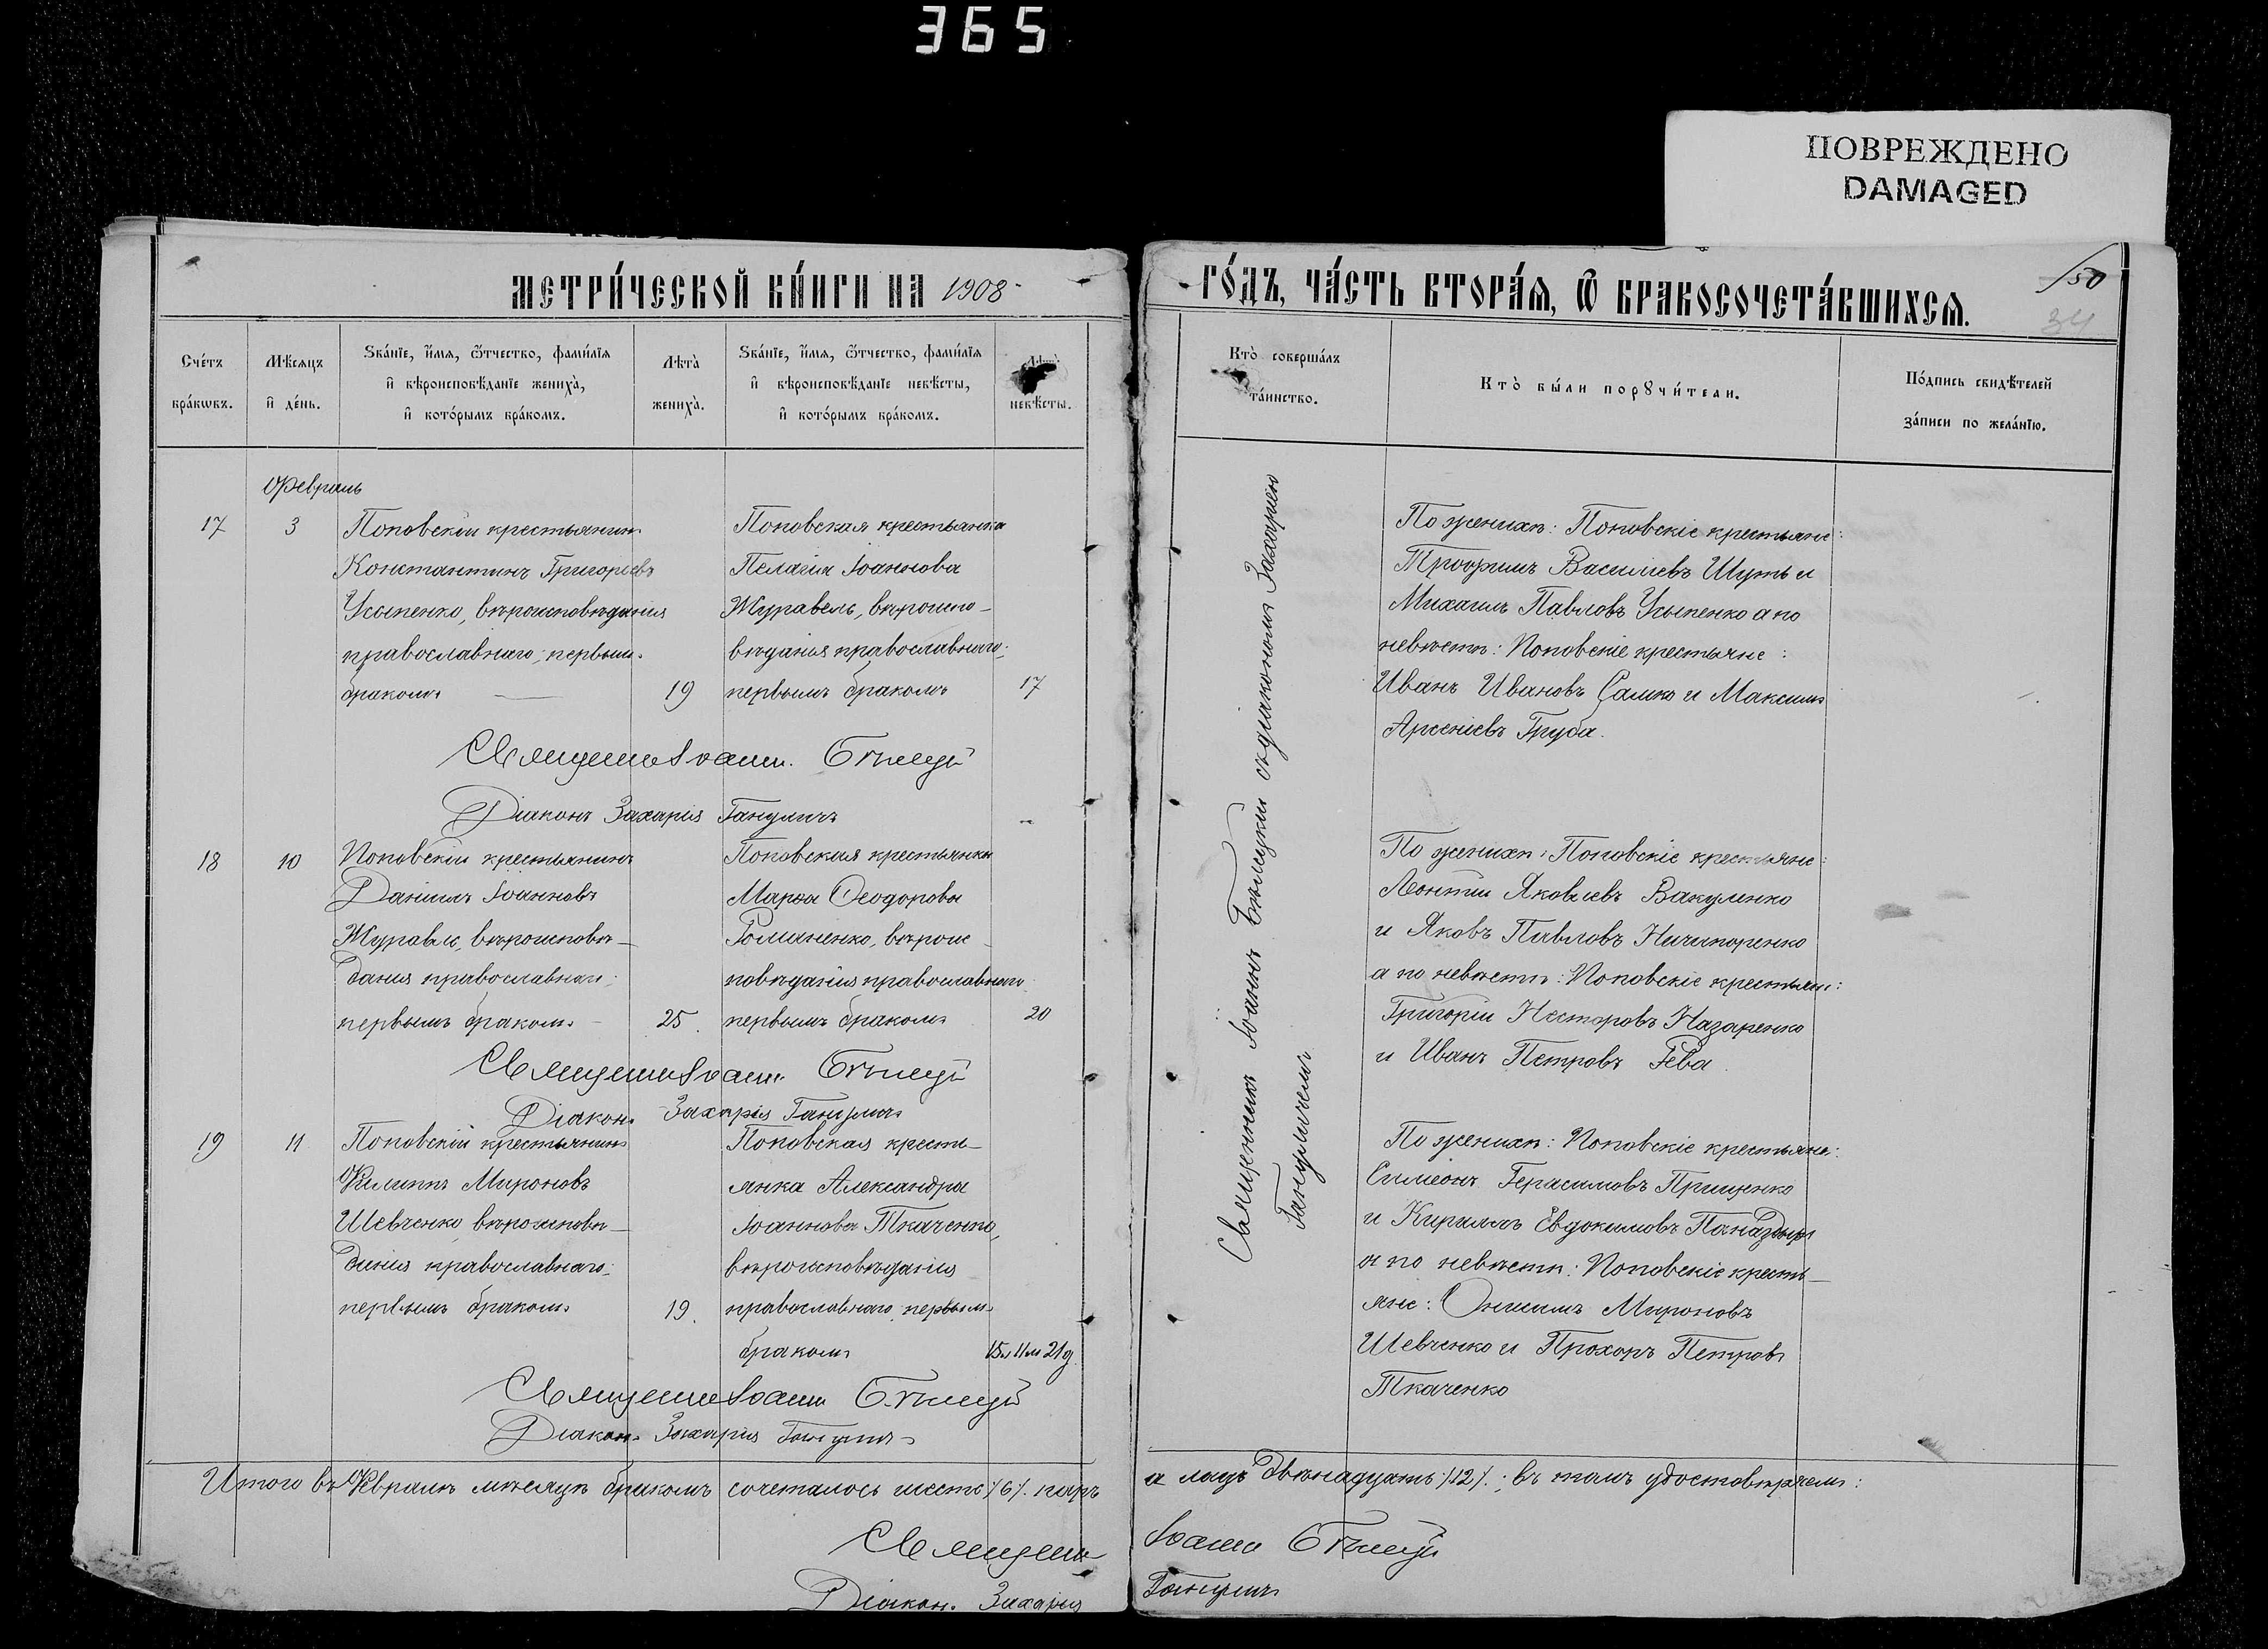 365
ПОВРЕЖДЕНО
DAMAGED
МЕТРИ́ЧЕСКОЙ КНИ́ГИ НА 1908
ГО́ДЪ, ЧА́СТЬ ВТОРА́Ѧ, Ѿ БРАКОСОЧЕТА́ВШИХСѦ.
150
34
Сче́тъ бра́кѡвъ.
Мѣ́сѧцъ и҆ де́нь.
Ѕва́нїе, и҆́мѧ, ѻ҆́тчество, фами́лїѧ
и҆ вѣроисповѣ́данїе жениха̀,
и҆ кото́рымъ бра́комъ.
Лѣта̀ жениха̀.
Ѕва́нїе, и҆́мѧ, ѻ҆́тчество, фами́лїѧ
и҆ вѣроисповѣ́данїе невѣ́сты,
и҆ кото́рымъ бра́комъ.
невѣ́сты.
Кто̀ соверша́лъ
та́инство.
Кто̀ бы́ли порꙋчи́тели.
По́дпись свидѣ́телей
за́писи по жела́нїю.
Февраль
17
3
Поповскій крестьянинъ
Константинъ Григоріевъ
Усыпенко, вѣроисповѣданія
православнаго; первымъ
бракомъ
19
Поповская крестьянка
Пелагія Іоаннова
Журавель, вѣроиспо-
вѣданія православнаго;
первымъ бракомъ
17
По женихѣ: Поповскіе крестьяне:
Трофимъ Василіевъ Шуть и
Михаилъ Павловъ Усыпенко а по
невѣстѣ: Поповскіе крестьяне:
Иванъ Ивановъ Салико и Максимъ
Арсеніевъ Груба.
Священникъ Іоаннъ Бѣлицкій
Діаконъ Захарія Гануличъ
18
10
Поповскій крестьянинъ
Даніилъ Іоанновъ
Журавле, вѣроисповѣ-
данія православнаго;
первымъ бракомъ
25
Поповская крестьянка
Марѳа Ѳеодорова
Романенко, вѣроис-
повѣданія православнаго
первымъ бракомъ
20
По женихѣ: Поповскіе крестьяне:
Леонтій Яковлевъ Вакуленко
и Яковъ Павловъ Ничипоренко
а по невѣстѣ: Поповскіе крестьян:
Григорій Несторовъ Назаренко
и Иванъ Петровъ Гева.
Священникъ Іоаннъ Бѣлицкій
Діаконъ Захарія Гануличъ
19
11
Поповскій крестьянинъ
Филиппъ Мироновъ
Шевченко, вѣроисповѣ-
данія православнаго;
первымъ бракомъ
19.
Поповская кресть-
янка Александра
Іоаннова Ткаченко,
вѣроисповѣданія
православнаго, первымъ
бракомъ
15л 11м 21д
По женихѣ: Поповскіе крестьяне:
Симеонъ Герасимовъ Прищенко
и Кириллъ Евдокимовъ Панадыръ
а по невѣстѣ: Поповскіе кресть-
яне: Онисимъ Мироновъ
Шевченко и Прохоръ Петровъ
Ткаченко
Священникъ Іоаннъ Бѣлицкій
Діаконъ Захарія Гануличъ
Священникъ Іоаннъ Бѣлицкій съ діакономъ Захаріею
Гануличемъ
Итого въ Февралѣ мѣсяцѣ бракомъ сочеталось шесть /6/. паръ
а лицъ двѣнадцать /12/.; въ томъ удостовѣряемъ:
Священникъ Іоаннъ Бѣлицкій
Діаконъ Захарія Гануличъ